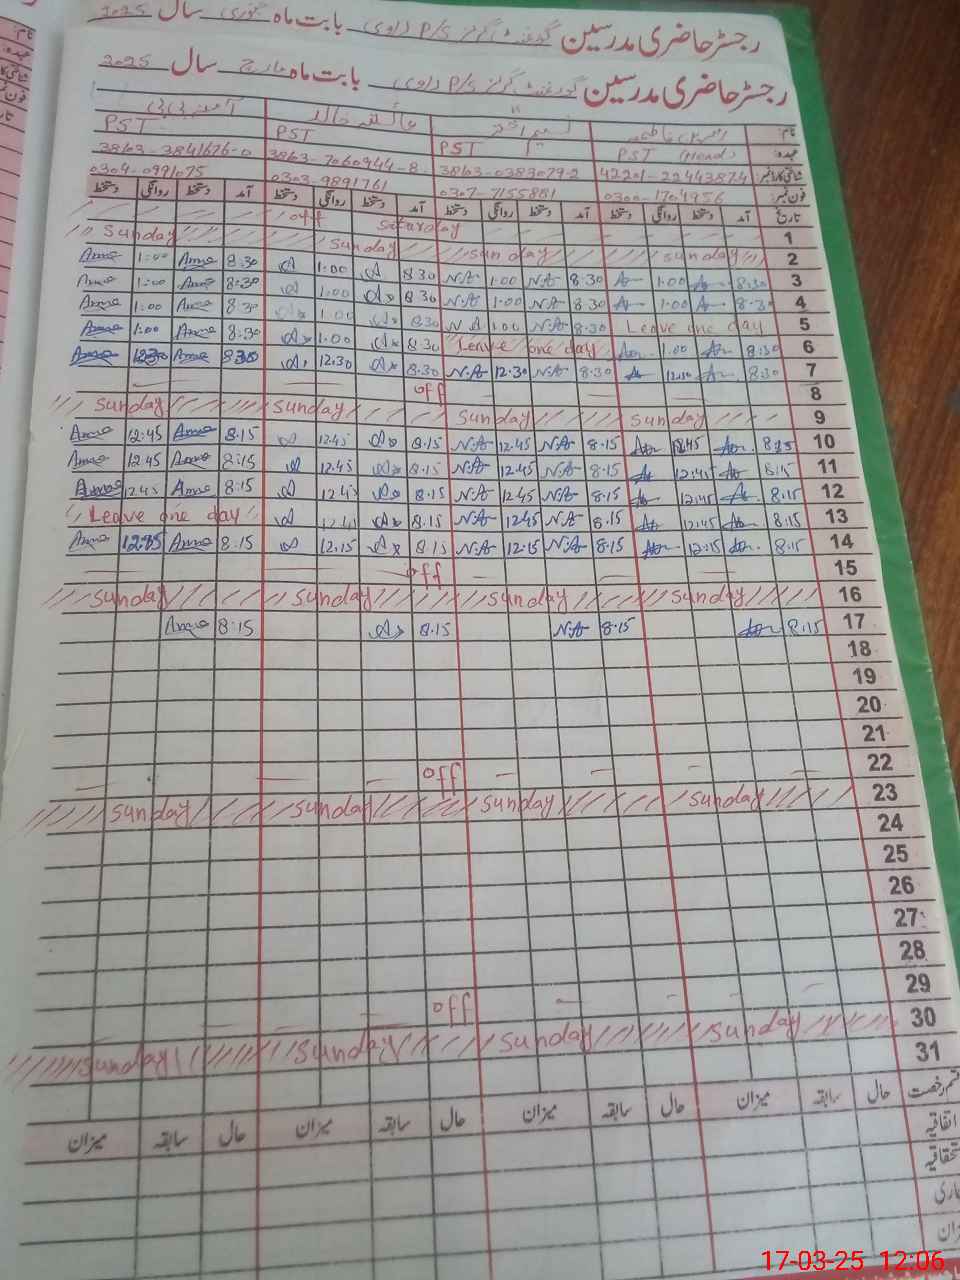 رجسٹر حاضری مدرسین گورنمنٹ گرلز P/S (راوی) بابت ماہ جنوری سال 2025
رجسٹر حاضری مدرسین گورنمنٹ گرلز P/S (راوی) بابت ماہ مارچ سال 2025
نام: نسیم اختر عائشہ خالد آمنہ بی بی
عہدہ: PST (Head) PST PST PST
شناختی کارڈ نمبر 42201-22443874 3863-0383079-2 3863-7060944-8 3863-3841676-0
فون نمبر: 0300-1704956 0307-7155881 0303-9891761 0304-0991075
تاریخ آمد دستخط روانگی دستخط آمد دستخط روانگی دستخط آمد دستخط روانگی دستخط آمد دستخط روانگی دستخط
1 Saturday off
2 Sunday Sunday Sunday Sunday
3 8:30 1:00 8:30 N.A 1:00 N.A 8:30 1:00 8:30 Amna 1:00 Amna
4 8:30 1:00 8:30 N.A 1:00 N.A 8:30 1:00 8:30 Amna 1:00 Amna
5 Leave one day 8:30 N.A 1:00 N.A 8:30 1:00 8:30 Amna 1:00 Amna
6 8:30 1:00 Leave one day 8:30 1:00 8:30 Amna 1:00 Amna
7 8:30 12:30 8:30 N.A 12:30 N.A 8:30 12:30 8:30 Amna 12:30 Amna
8 off
9 Sunday Sunday Sunday Sunday
10 8:15 12:45 8:15 N.A 12:45 N.A 8:15 12:45 8:15 Amna 12:45 Amna
11 8:15 12:45 8:15 N.A 12:45 N.A 8:15 12:45 8:15 Amna 12:45 Amna
12 8:15 12:45 8:15 N.A 12:45 N.A 8:15 12:45 8:15 Amna 12:45 Amna
13 8:15 12:45 8:15 N.A 12:45 N.A 8:15 12:45 Leave one day
14 8:15 12:15 8:15 N.A 12:15 N.A 8:15 12:15 8:15 Amna 12:15 Amna
15 off
16 Sunday Sunday Sunday Sunday
17 8:15 8:15 N.A 8:15 8:15 Amna
18
19
20
21
22 off
23 Sunday Sunday Sunday Sunday
24
25
26
27
28
29 off
30 Sunday Sunday Sunday Sunday
31
قسم رخصت حال سابقہ میزان حال سابقہ میزان حال سابقہ میزان حال سابقہ میزان
اتفاقیہ
17-03-25 12:06